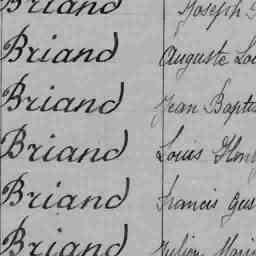 Briand Joseph
Briand Auguste Lou
Briand Jean Baptis
Briand Louis Henry
Briand Francis Gus
Briand Julien Marie